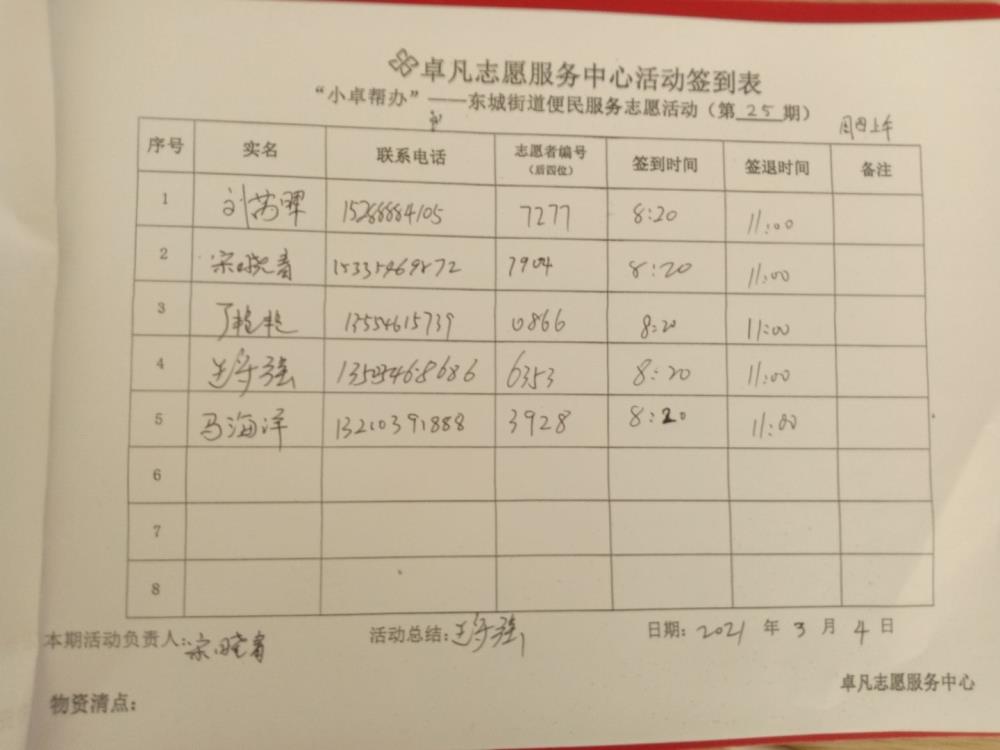 卓凡志愿服务中心活动签到表
“小卓帮办”——东城街道便民服务志愿活动（第25期）
周四上午
序号 实名 联系电话 志愿者编号（后四位） 签到时间 签退时间 备注
1 刘 15288884105 7277 8:20 11:00
2 宋晓青 15335469872 7904 8:20 11:00
3 丁艳艳 13554615739 0866 8:20 11:00
4 王守强 6353 8:20 11:00
5 马海洋 13210391888 3928 8:20 11:00
6
7
8
本期活动负责人：宋晓青 活动总结：王守强 日期：2021年3月4日
卓凡志愿服务中心
物资清点：